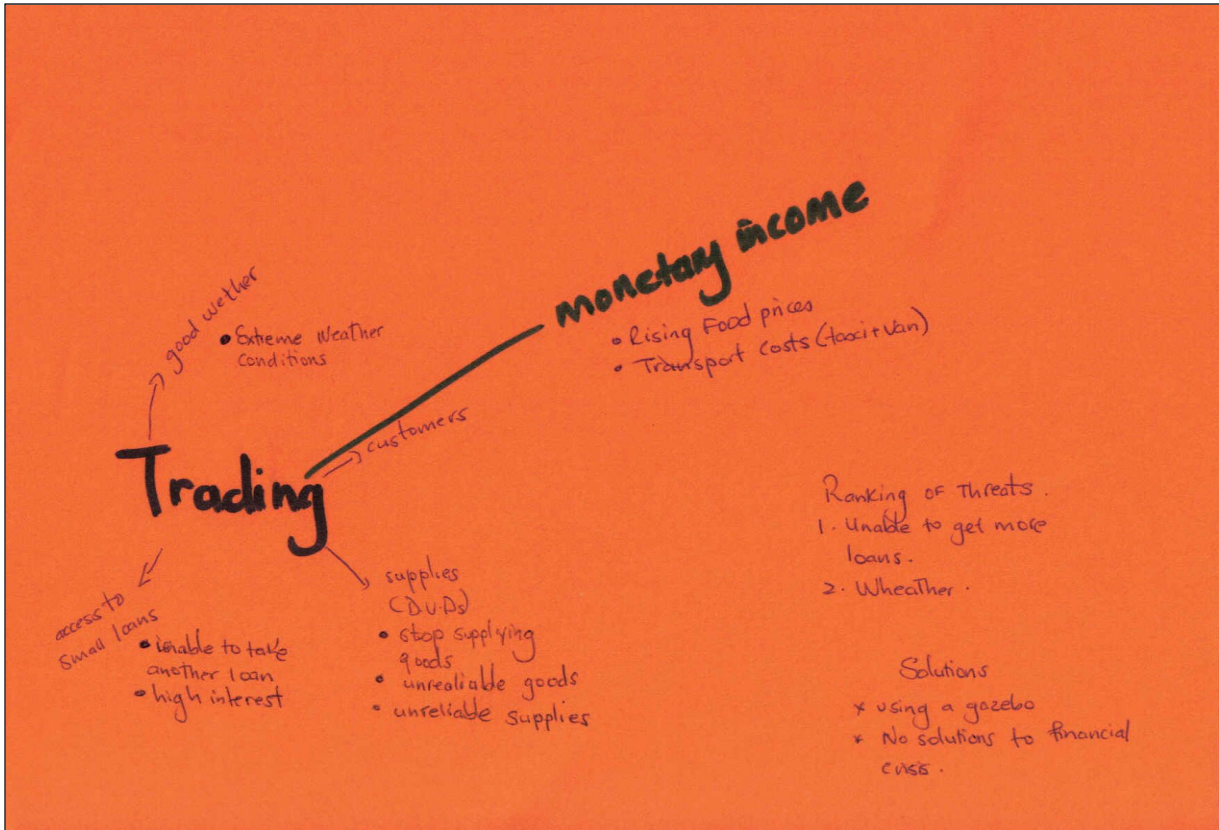 monetary income
• Rising Food prices
• Transport Costs (taxi + Van)
good wether
• Extreme Weather
Conditions
customers
Trading
access to
small loans
• unable to take
another loan
• high interest
supplies
(D.V.Ds)
• stop supplying
goods
• unrealiable goods
• unreliable supplies
Ranking of Threats.
1. Unable to get more
loans.
2. Wheather.
Solutions
* using a gazebo
* No solutions to financial
crisis.